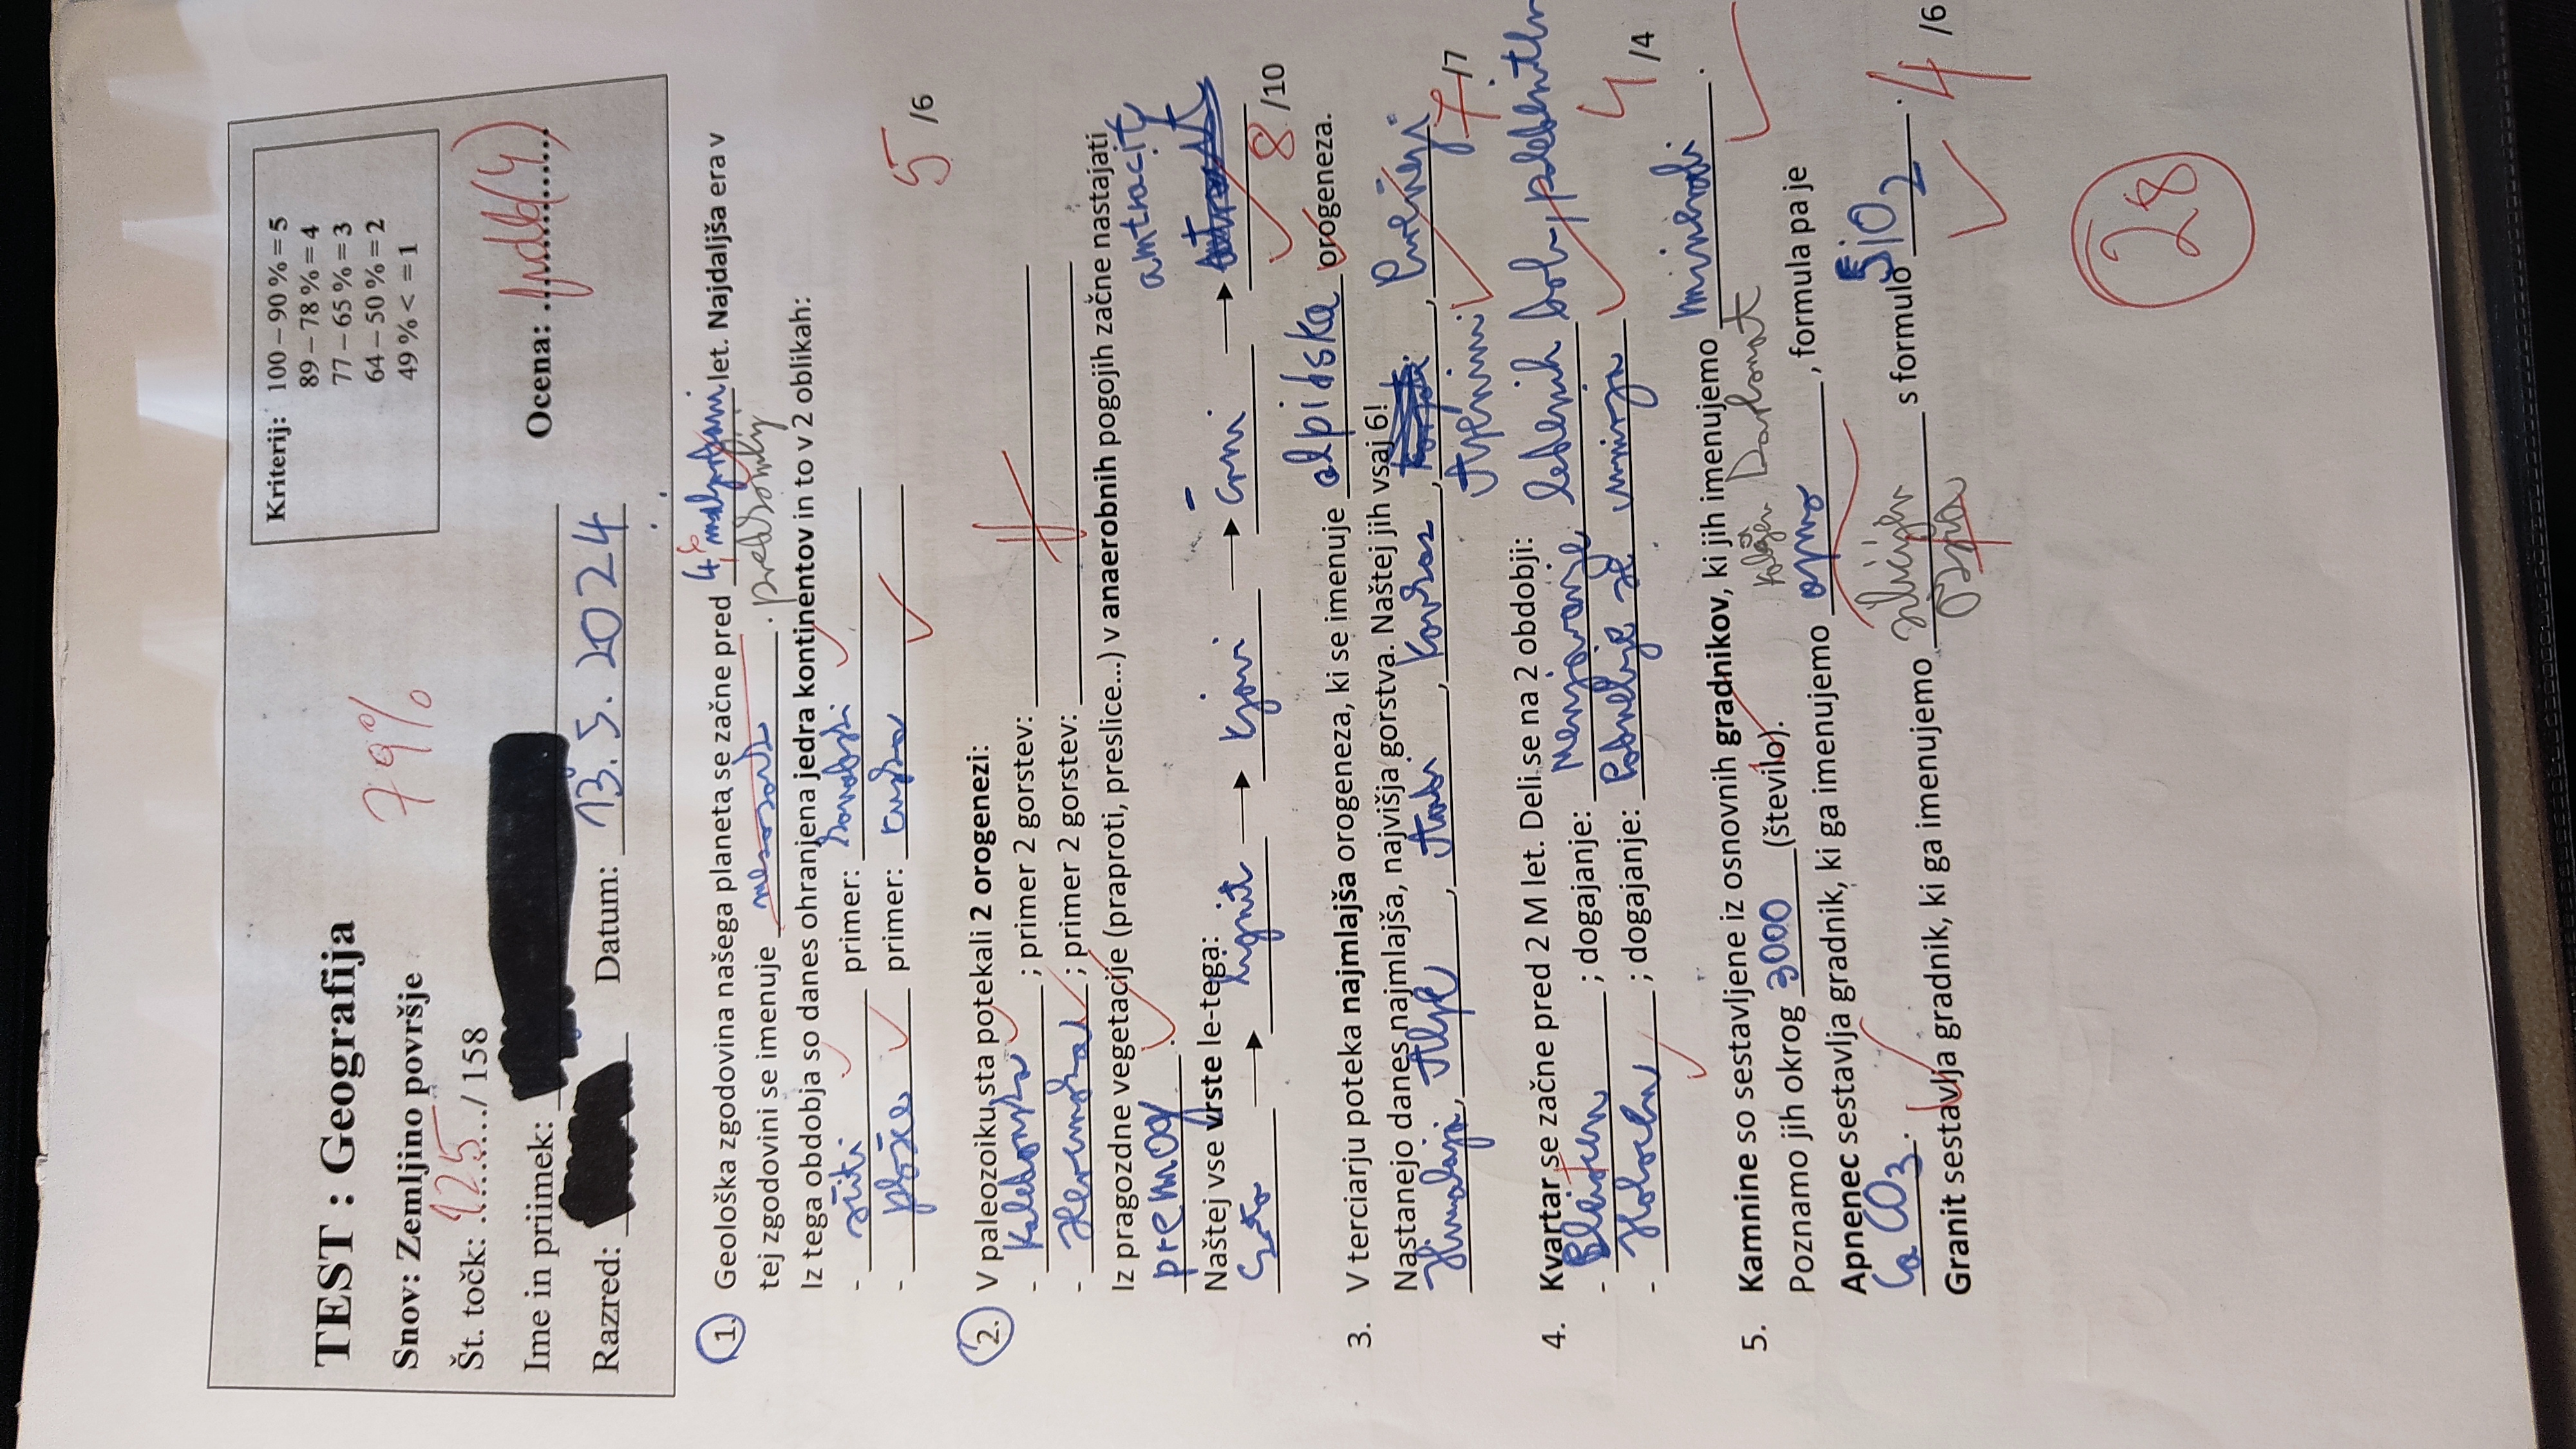 Kriterij: 100 – 90 % = 5
89 – 78 % = 4
77 – 65 % = 3
64 – 50 % = 2
49 % < = 1
TEST : Geografija
79%
Snov: Zemljino površje
Št. točk: 125 / 158
Ime in priimek:
Ocena: (4)
Razred: Datum: 13. 5. 2024
1. Geološka zgodovina našega planeta se začne pred 4,6 let. Najdaljša era v
tej zgodovini se imenuje mezozoik.
Iz tega obdobja so danes ohranjena jedra kontinentov in to v 2 oblikah:
- ščiti primer: kanadski
- plošče primer: ruska
5 /6
2. V paleozoiku sta potekali 2 orogenezi:
- Kaledonska ; primer 2 gorstev:
- Hercinska ; primer 2 gorstev:
Iz pragozdne vegetacije (praproti, preslice...) v anaerobnih pogojih začne nastajati
premog.
amtracit
Naštej vse vrste le-tega:
šota → lignit → rjavi → črni →
8 /10
3. V terciarju poteka najmlajša orogeneza, ki se imenuje alpidska orogeneza.
Nastanejo danes najmlajša, najvišja gorstva. Naštej jih vsaj 6!
Himalaja, Alpe, Andi, Kavkaz, , Pireneji
Apenini
7 /7
4. Kvartar se začne pred 2 M let. Deli se na 2 obdobji:
- Pleistocen ; dogajanje: Menjavanje ledenih dob,
- Holocen ; dogajanje: Podnebje se umirja
4 /4
5. Kamnine so sestavljene iz osnovnih gradnikov, ki jih imenujemo minerali.
Poznamo jih okrog 3000 (število).
Apnenec sestavlja gradnik, ki ga imenujemo apno, formula pa je
CaCO3.
Granit sestavlja gradnik, ki ga imenujemo silicijev s formulo SiO2.
4 /6
28